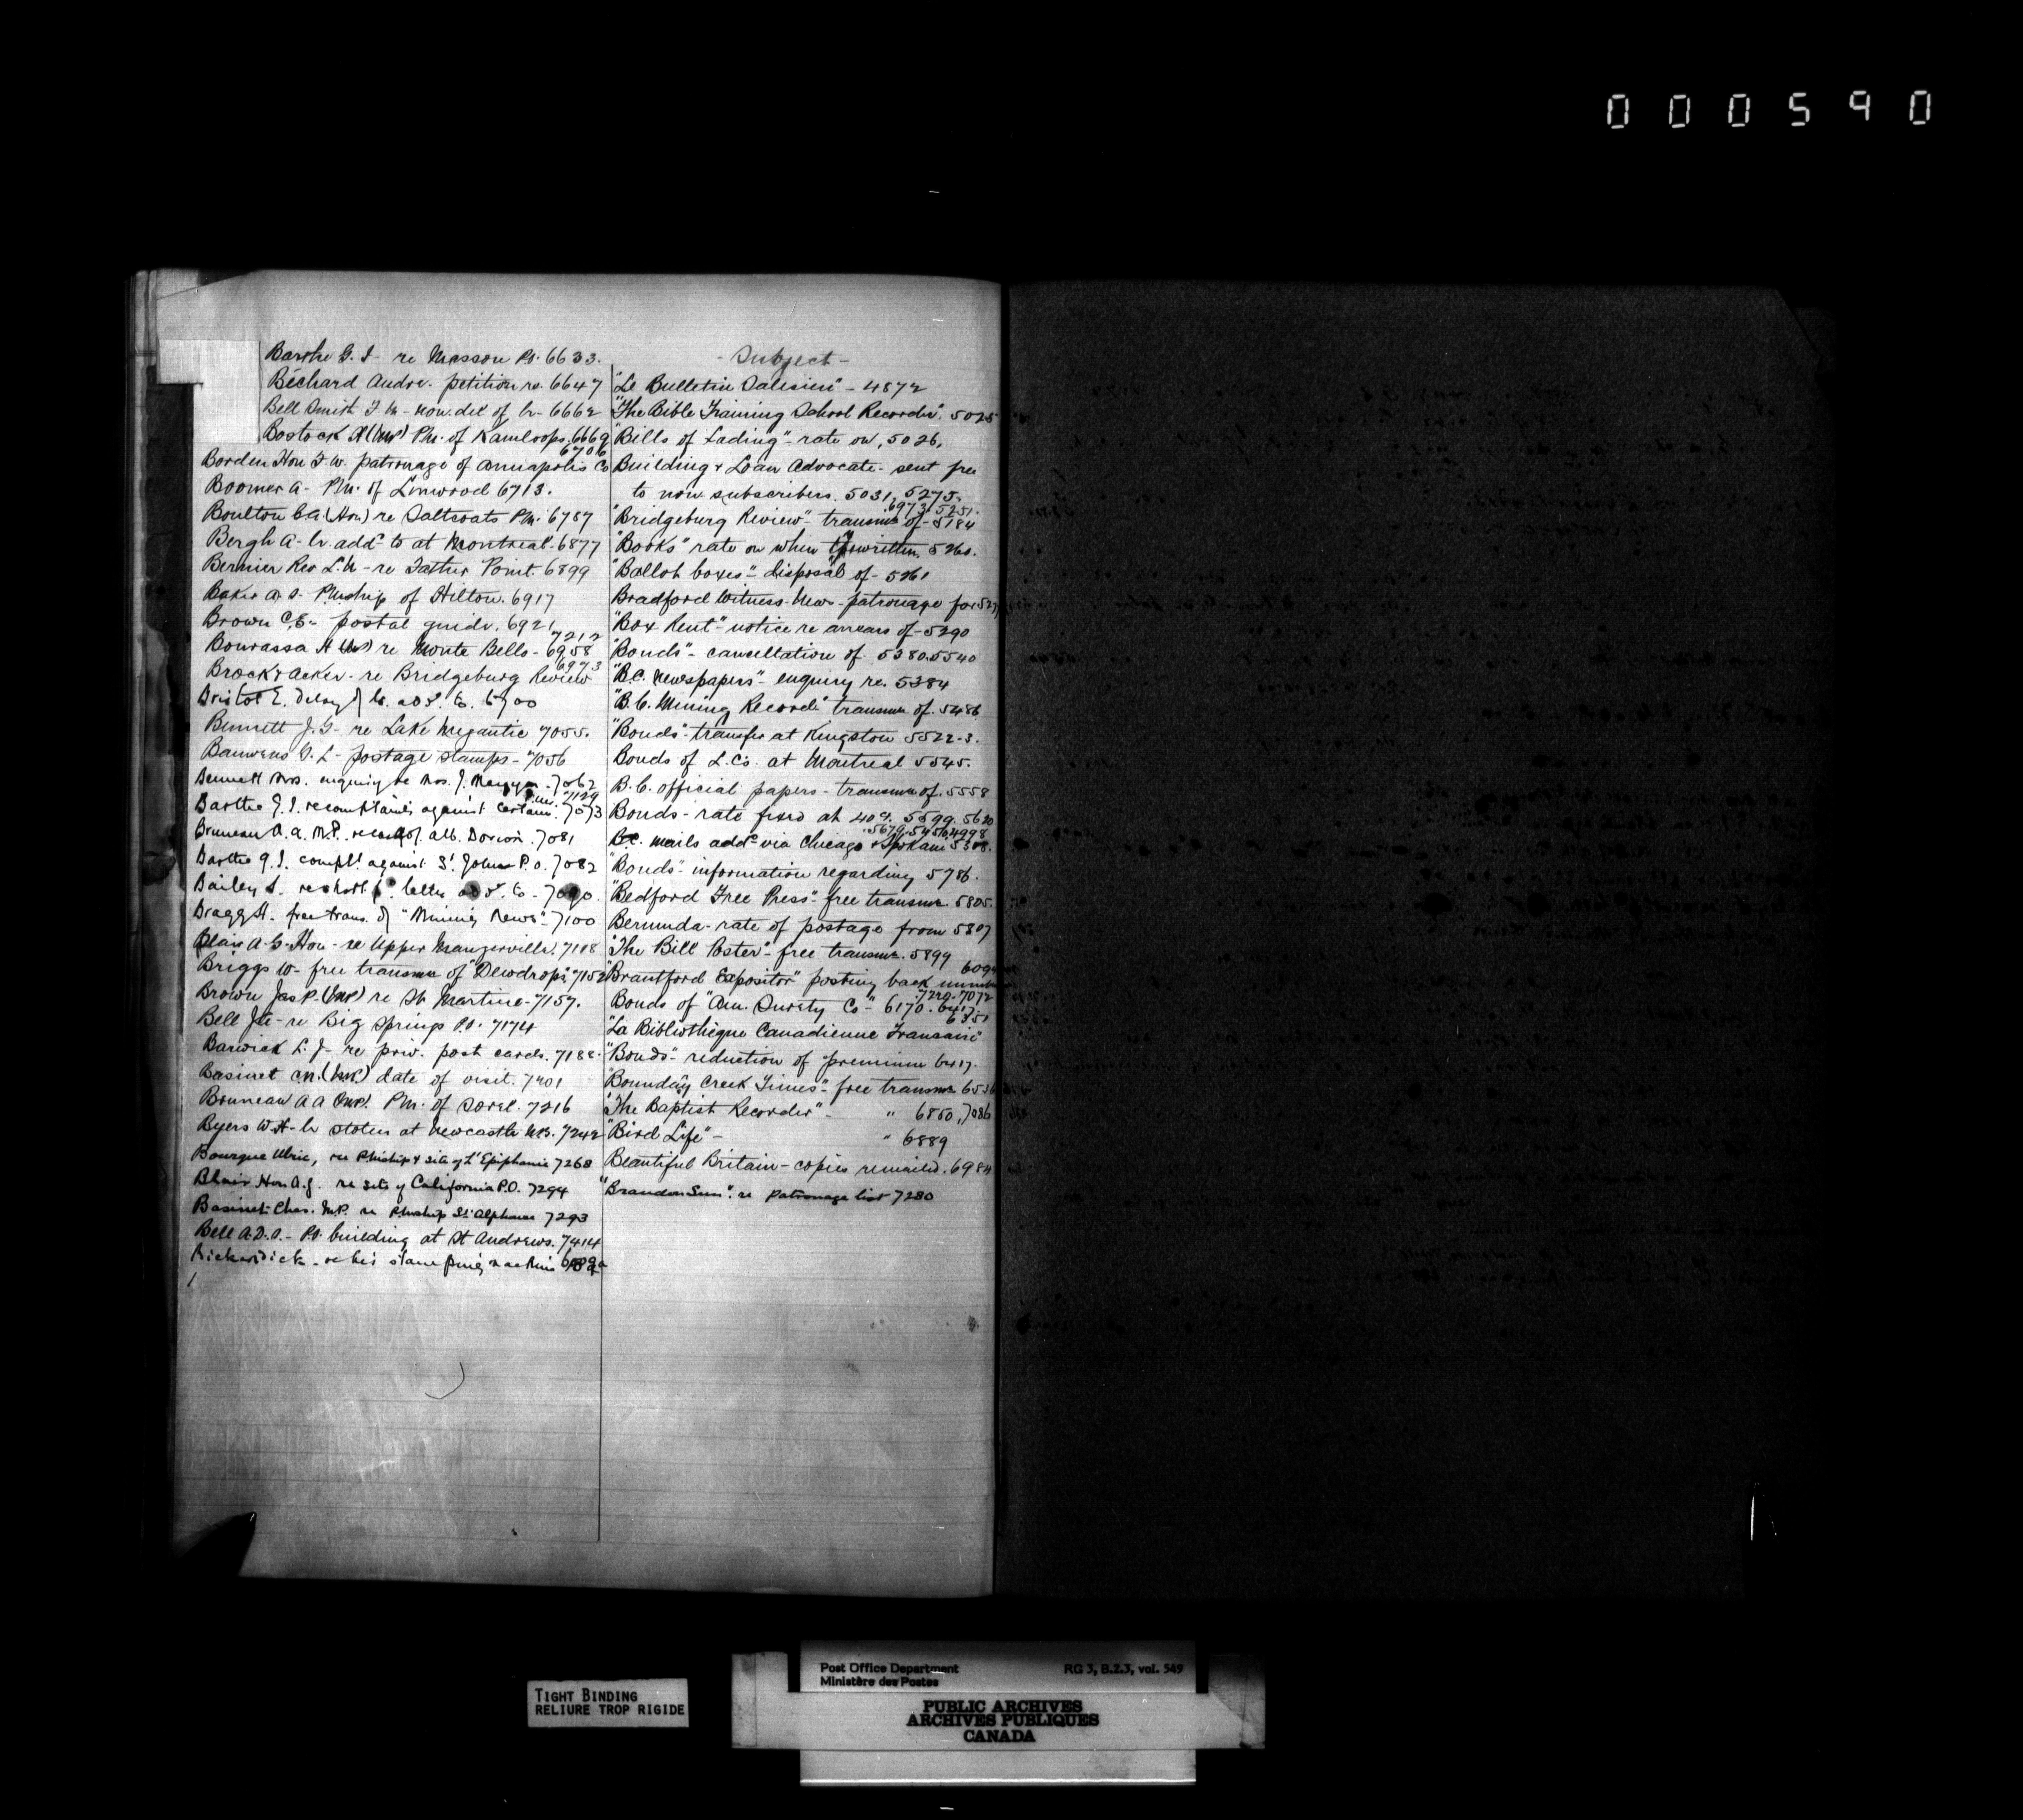 000590
Barthe G. I - re Masson Po. 6633.
Béchard Andre. petition re. 6647
Bell Smith F. M - non. del of lr - 6662
Bostock H (MP) Pm. of Kamloops. 6669
6706
Borden Hon F. W. patronage of Annapolis Co
Boomer A - Pm. of Linwood 6713.
Boulton C.A. (Hon) re Saltcoats Pm. 6787
Bergh A - lr. addd to at Montreal. 6877
Bernier Rev L. N - re Father Point. 6899
Baker A. S. Pmship of Hilton. 6917
Brown C.E - postal guide. 6921
7212
Bourassa H (MP) re Monte Bello - 6958
6973
Brock & Acker - re Bridgeburg Review
Bristol E. delay of lr. add. to. 6700
Bennett J. G - re Lake Megantic 7055.
Bauwens G. L - postage stamps - 7056
Bennett Mrs. enquiry re Mrs. J. 7062
7129
Barthe G. I. re complaints against certain 7073
Bruneau A. A. M.P. re alb. Dorion. 7081
Barthe G. I. complt. against St Johns P.O. 7082
Bailey S. re letter add. to - 7090.
Bragg H. free trans. of "Mining News" - 7100
Blair A. G - Hon - re Upper Maugerville. 7118
Briggs W - free transmn of "Dewdrops" 7152
Brown Jas P. (MP) re St Martine - 7157.
Bell Jte - re Big Springs P.O. 7174
Barwick L. J - re priv. post cards. 7188.
Basinet C.N. (MP.) date of visit. 7201
Bruneau A A (MP). Pm. of Sorel. 7216
Byers W.H - lr stolen at Newcastle N.B. 7242
Bourque Ulric, re Pmship & site of L'Epiphanie 7268
Blair Hon A. G. re site of California P.O. 7294
Basinet Chas. M.P. re Pmship St. Alphonse 7293
Bell A.D.A. - P.O. building at St Andrews. 7414
Bickerdick - re his stamping machine
- Subject -
"Le Bulletin Salesien" - 4872
"The Bible Training School Recorder". 5025
"Bills of Lading" - rate on, 5026,
Building & Loan Advocate - sent free
to non subscribers. 5031, 5275.
6973. 5251.
"Bridgeburg Review" - transmn of - 5184
"Books" rate on when typewritten. 5260.
"Ballot boxes" - disposal of - 5261
Bradford Witness. News - patronage for 527
"Box Rent" - notice re arrears of - 5290
"Bonds" - cancellation of. 5380. 5540
"B.C. Newspapers" - enquiry re. 5384
"B.C. Mining Record" transmn of. 5486
"Bonds" - transfer at Kingston 5522-3.
Bonds of L.Cs. at Montreal 5545.
B.C. official papers - transmn of. 5558
Bonds - rate fixed at 40%. 5599. 5620
5679. 5450. 4998
B.C. mails addd via Chicago & Spokane 5308.
"Bonds" - information regarding 5786.
"Bedford Free Press" - free transmn. 5805.
Bermuda - rate of postage from 5807
"The Bill Poster" - free transmn. 5899
609
"Brantford Expositor" posting back numbers
7220. 7072
Bonds of "Am. Surety Co" - 6170. 6417.
6351
"La Bibliothèque Canadienne Française"
"Bonds" - reduction of premium 6417.
"Boundary Creek Times" - free transmn 6536
"The Baptist Recorder" - " 6850, 7086
"Bird Life" - " 6889
Beautiful Britain - copies remailed. 6984
"Brandon Sun". re patronage list 7280
TIGHT BINDING
RELIURE TROP RIGIDE
Post Office Department RG 3, B.2.3, vol. 549
Ministère des Postes
PUBLIC ARCHIVES
ARCHIVES PUBLIQUES
CANADA